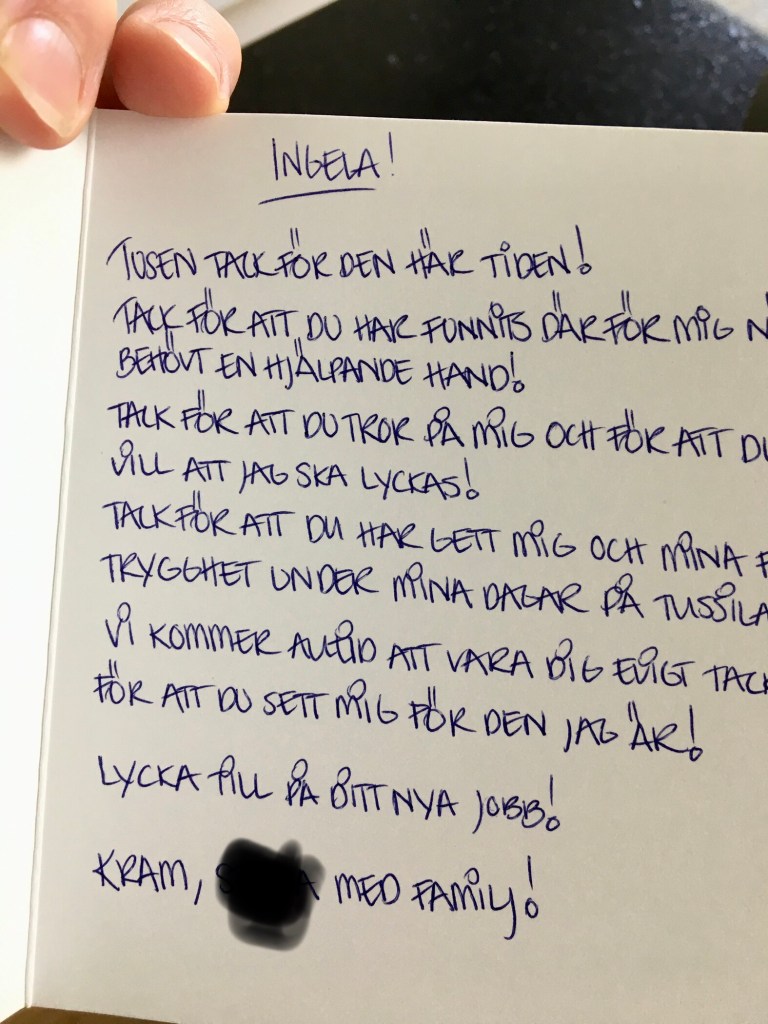 INGELA!
TUSEN TACK FÖR DEN HÄR TIDEN!
TACK FÖR ATT DU HAR FUNNITS DÄR FÖR MIG N
BEHÖVT EN HJÄLPANDE HAND!
TACK FÖR ATT DU TROR PÅ MIG OCH FÖR ATT DU
VILL ATT JAG SKA LYCKAS!
TACK FÖR ATT DU HAR GETT MIG OCH MINA F
TRYGGHET UNDER MINA DAGAR PÅ TUSSILA
VI KOMMER ALLTID ATT VARA DIG EVIGT TACK
FÖR ATT DU SETT MIG FÖR DEN JAG ÄR!
LYCKA TILL PÅ DITT NYA JOBB!
KRAM, MED FAMILJ!